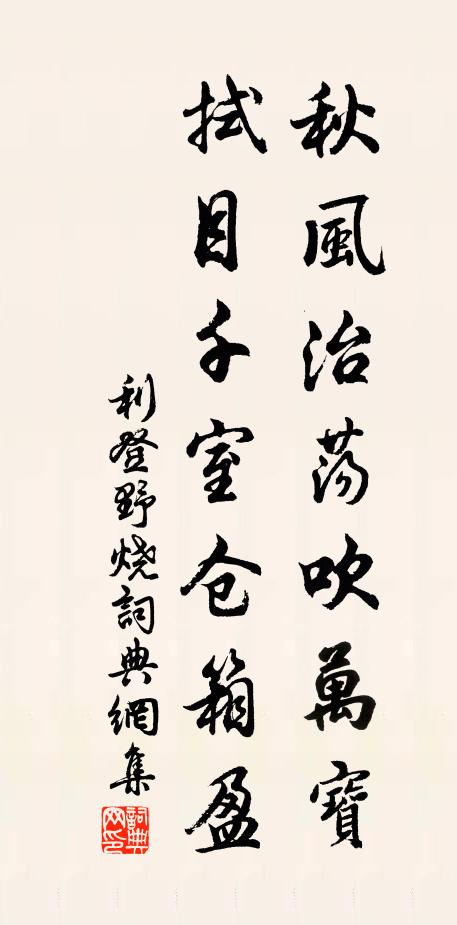 秋風治荡吹萬寶
拭目千室仓箱盈
利登野烧詞典網集
詞典網印